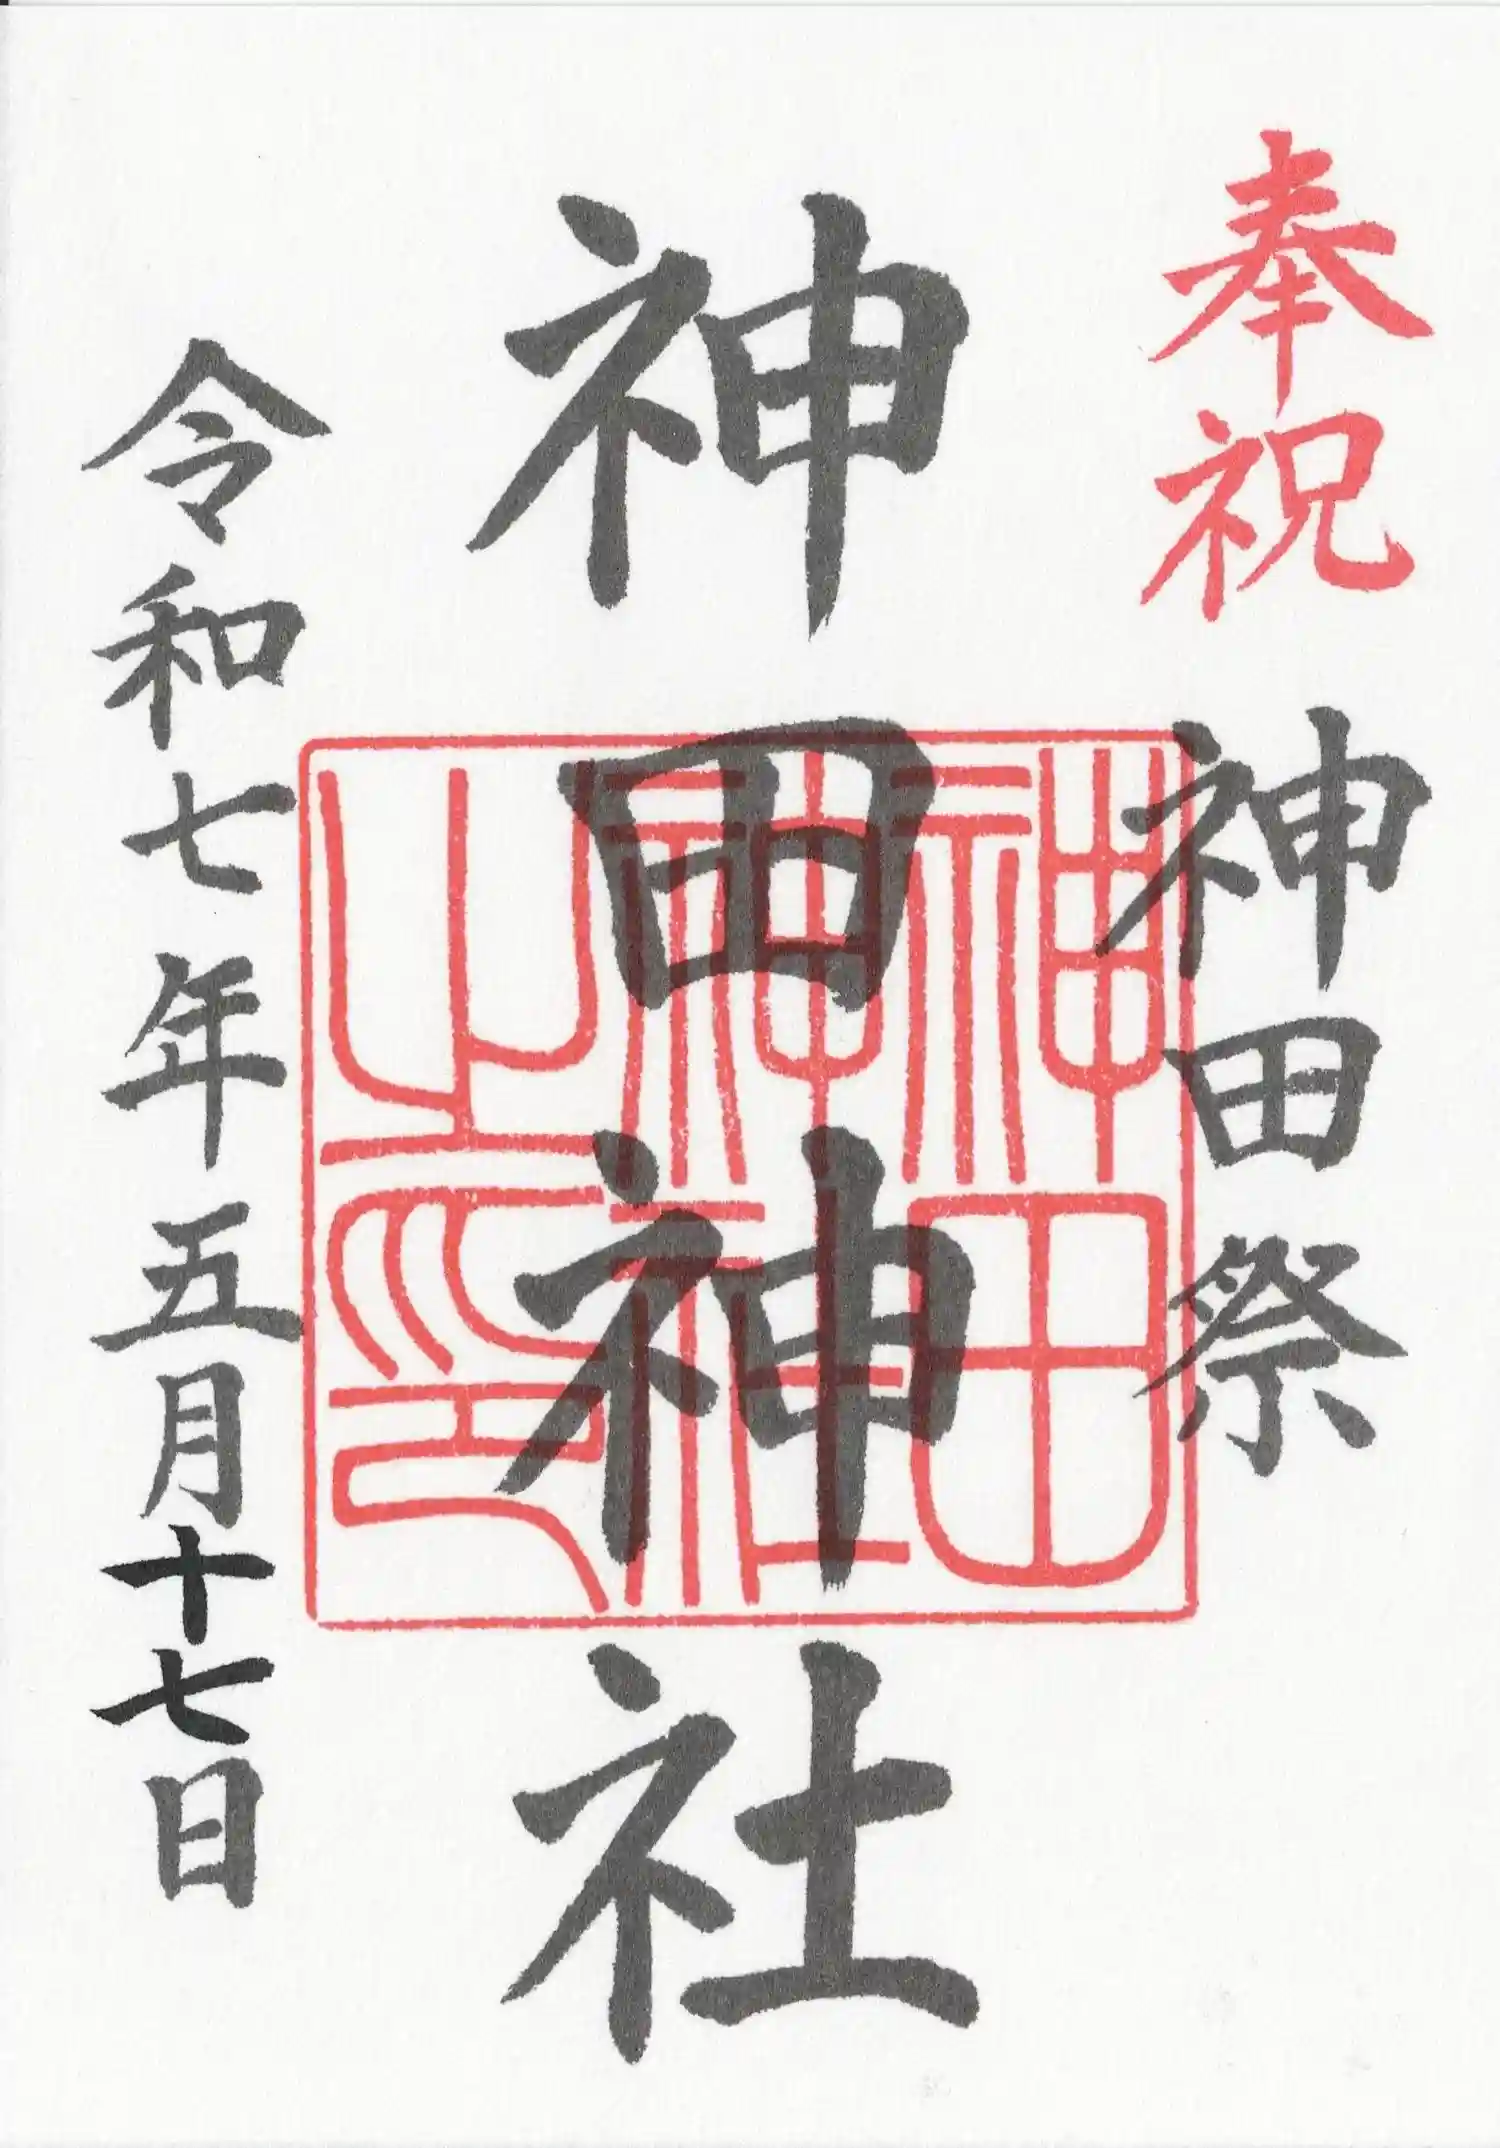 奉祝
神田祭
神田神社
神田神社之印
令和七年五月十七日